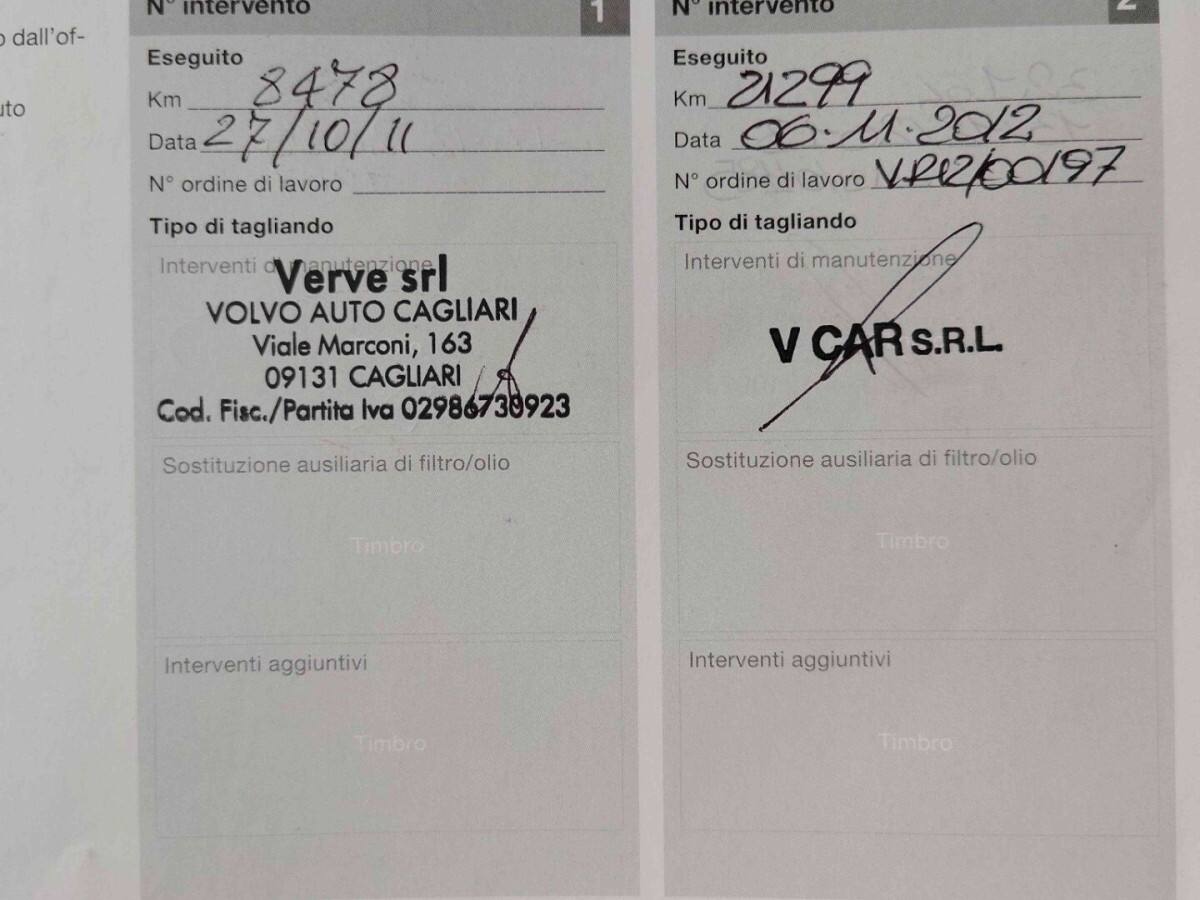 o dall'of-
uto
N° intervento 1
Eseguito
Km 8478
Data 27/10/11
N° ordine di lavoro
Tipo di tagliando
Interventi di manutenzione
Verve srl
VOLVO AUTO CAGLIARI
Viale Marconi, 163
09131 CAGLIARI
Cod. Fisc./Partita Iva 02986730923
Sostituzione ausiliaria di filtro/olio
Timbro
Interventi aggiuntivi
Timbro
N° intervento 2
Eseguito
Km 21299
Data 06.11.2012
N° ordine di lavoro
Tipo di tagliando
Interventi di manutenzione
V CAR S.R.L.
Sostituzione ausiliaria di filtro/olio
Timbro
Interventi aggiuntivi
Timbro